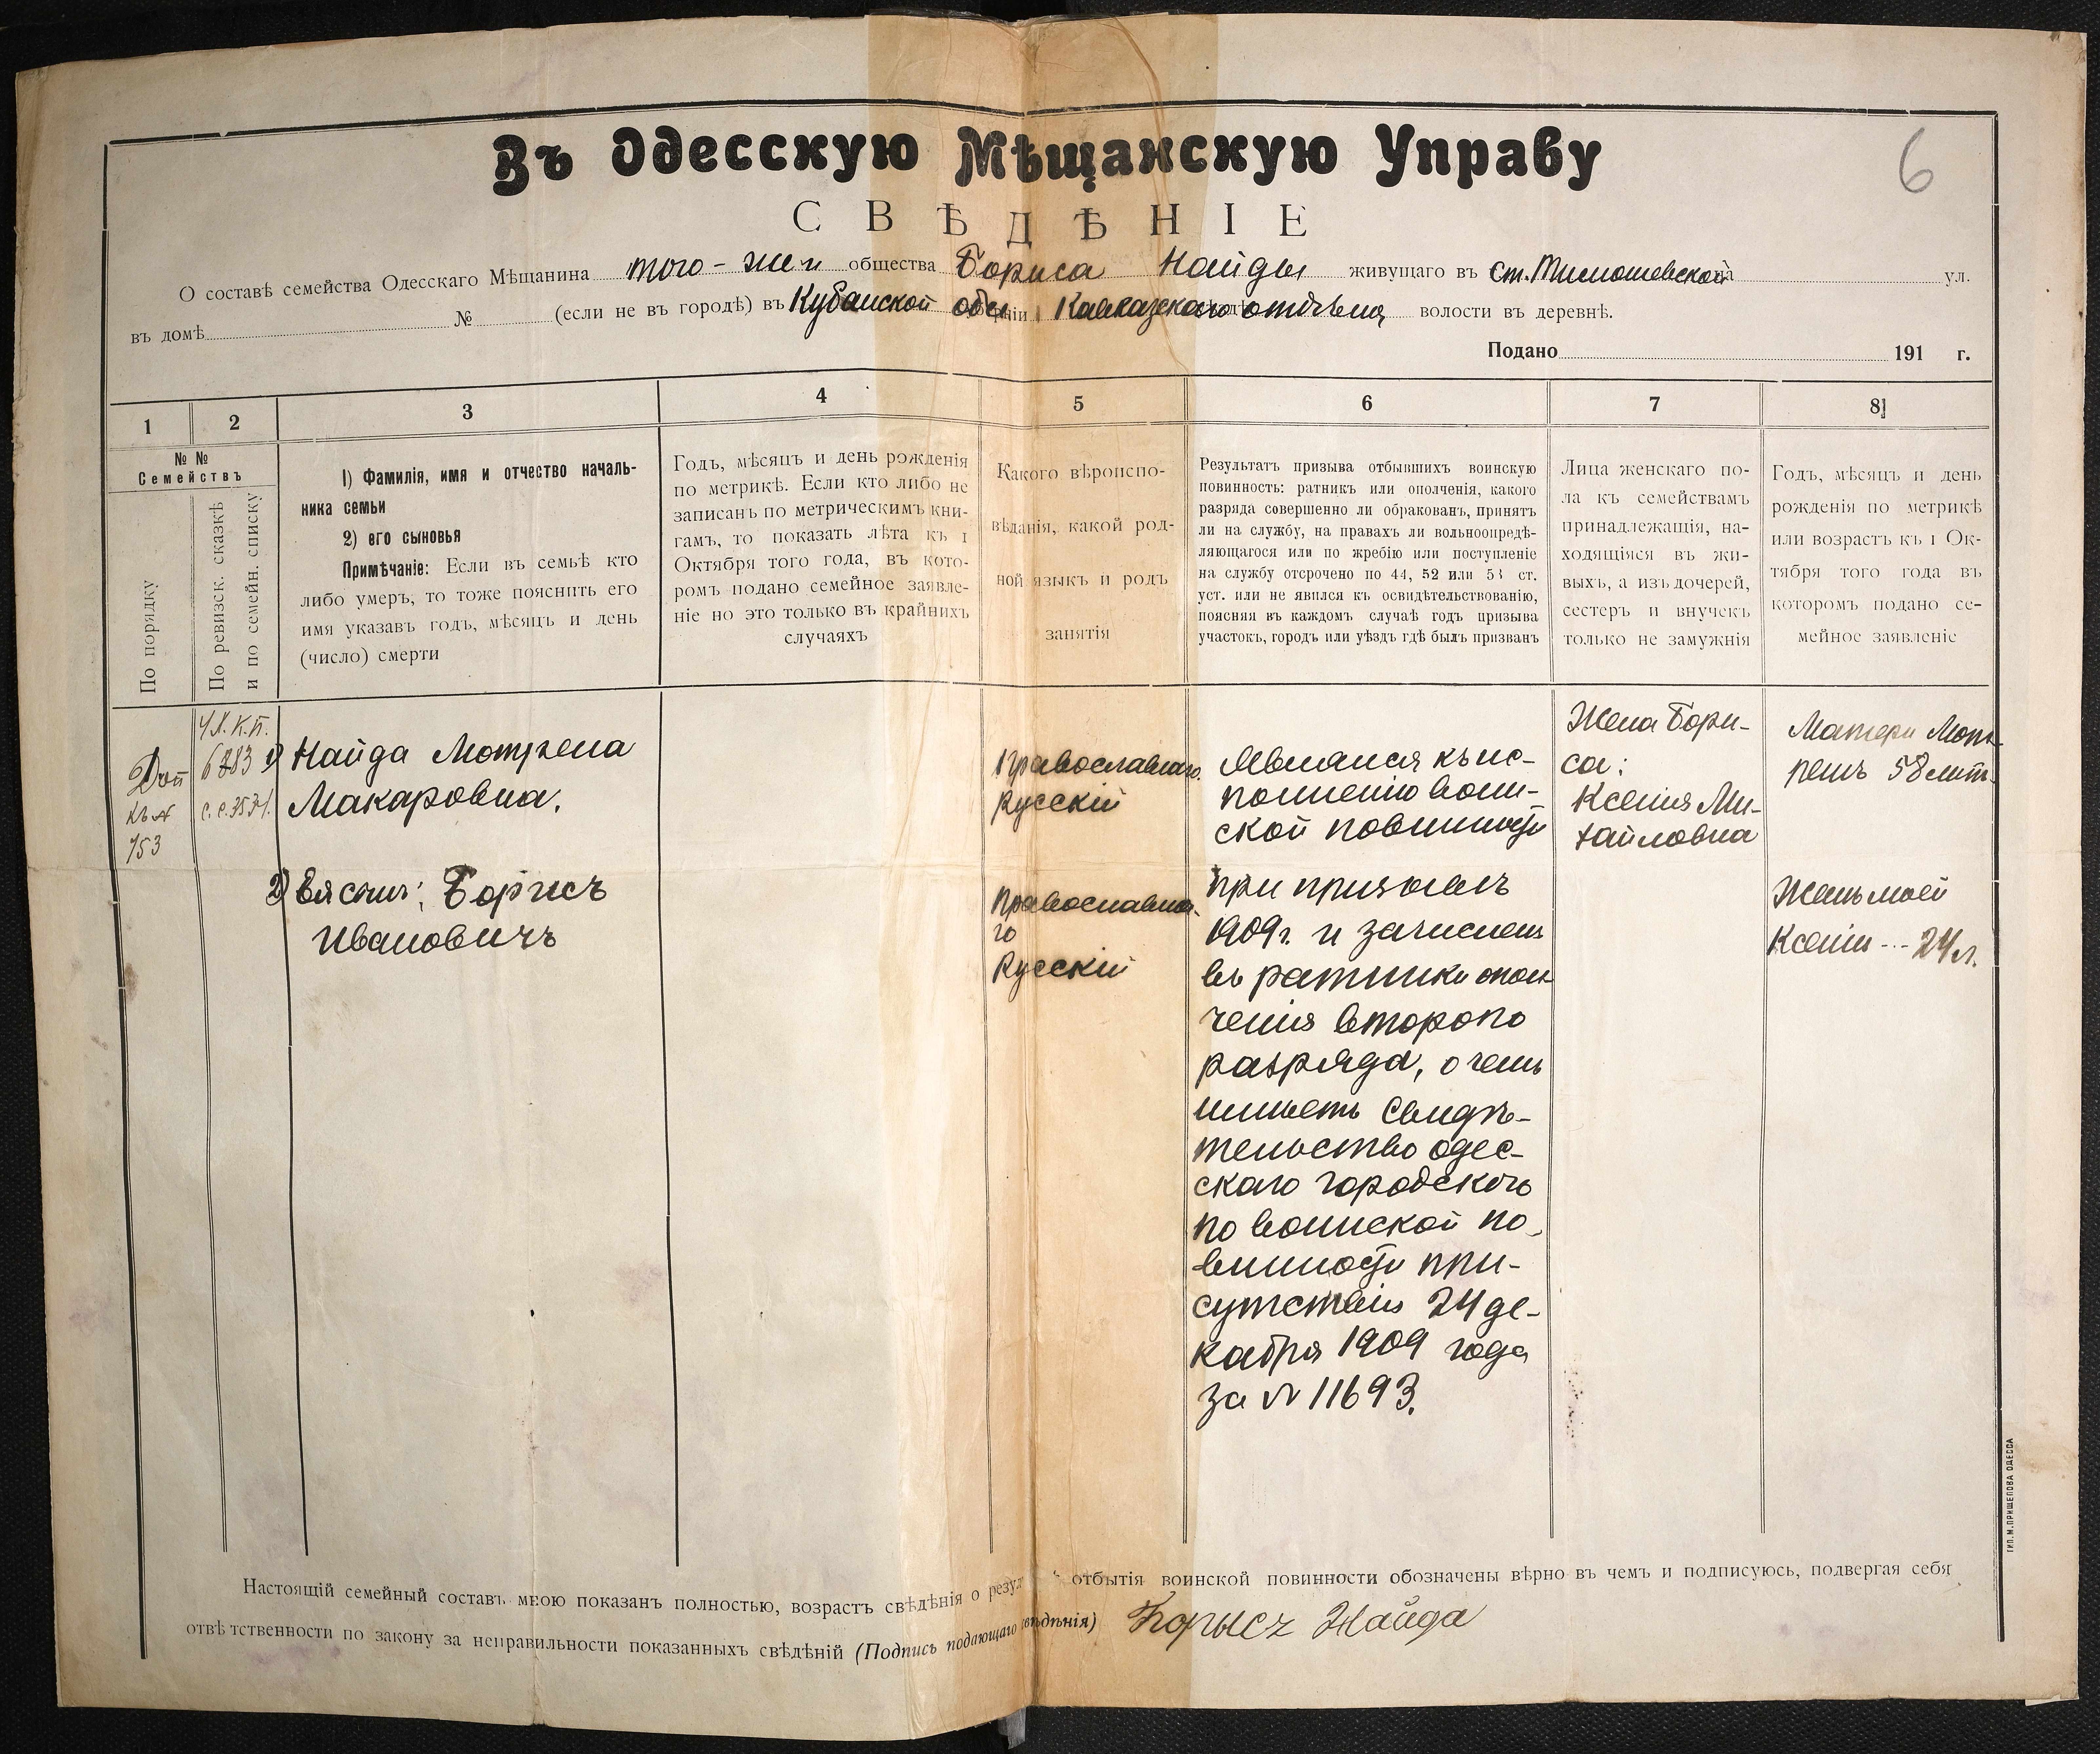 6
Въ Одесскую Мѣщанскую Управу
СВѢДѢНІЕ
О составѣ семейства Одесскаго Мѣщанина того-же общества Бориса Найды живущаго въ Ст. Тимошевской ул.
въ домѣ № (если не въ городѣ) въ Кубанской обл. Кавказскаго отдѣла, волости въ деревнѣ.
Подано 191 г.
1 2 3 4 5 6 7 8
№ №
Семействъ
По порядку
По ревизск. сказкѣ
и по семейн. списку
1) Фамилія, имя и отчество началь-
ника семьи
2) его сыновья
Примѣчаніе: Если въ семьѣ кто
либо умеръ, то тоже пояснить его
имя указавъ годъ, мѣсяцъ и день
(число) смерти
Годъ, мѣсяцъ и день рожденія
по метрикѣ. Если кто либо не
записанъ по метрическимъ кни-
гамъ, то показать лѣта къ 1
Октября того года, въ кото-
ромъ подано семейное заявле-
ніе но это только въ крайнихъ
случаяхъ
Какого вѣроиспо-
вѣданія, какой род-
ной языкъ и родъ
занятія
Результатъ призыва отбывшихъ воинскую
повинность: ратникъ или ополченія, какого
разряда совершенно ли обракованъ, принятъ
ли на службу, на правахъ ли вольноопредѣ-
ляющагося или по жребію или поступленіе
на службу отсрочено по 44, 52 или 53 ст.
уст. или не явился къ освидѣтельствованію,
поясняя въ каждомъ случаѣ годъ призыва
участокъ, городъ или уѣздъ гдѣ былъ призванъ
Лица женскаго по-
ла къ семействамъ
принадлежащія, на-
ходящіяся въ жи-
выхъ, а изъ дочерей,
сестеръ и внучекъ
только не замужнія
Годъ, мѣсяцъ и день
рожденія по метрикѣ
или возрастъ къ 1 Ок-
тября того года въ
которомъ подано се-
мейное заявленіе
Доп
къ №
753
6283
с.с. 3571.
1) Найда Мотрена
Макаровна.
2) Ея сынъ: Борисъ
Ивановичъ
Православнаго.
Русскій
Православна-
го
Русскій
Являлся къ ис-
полненію воин-
ской повинности
при призывѣ
1909 г. и зачисленъ
въ ратники опол-
ченія второго
разряда, о чемъ
имѣетъ свидѣ-
тельство одес-
скаго городского
по воинской по-
винности при-
сутствія 24 де-
кабря 1909 года
за № 11693.
Жена Бори-
са:
Ксенія Ми-
хайловна
Матери Мот-
ренѣ 58 лѣтъ.
Женѣ моей
Ксеніи -- 24 л.
Настоящій семейный составъ мною показанъ полностью, возрастъ свѣдѣнія о резул отбытія воинской повинности обозначены вѣрно въ чемъ и подписуюсь, подвергая себя
отвѣтственности по закону за неправильности показанныхъ свѣдѣній (Подпись подающаго свѣдѣнія) Борысъ Найда
ТИП. М. ПРИЩЕПОВА ОДЕССА